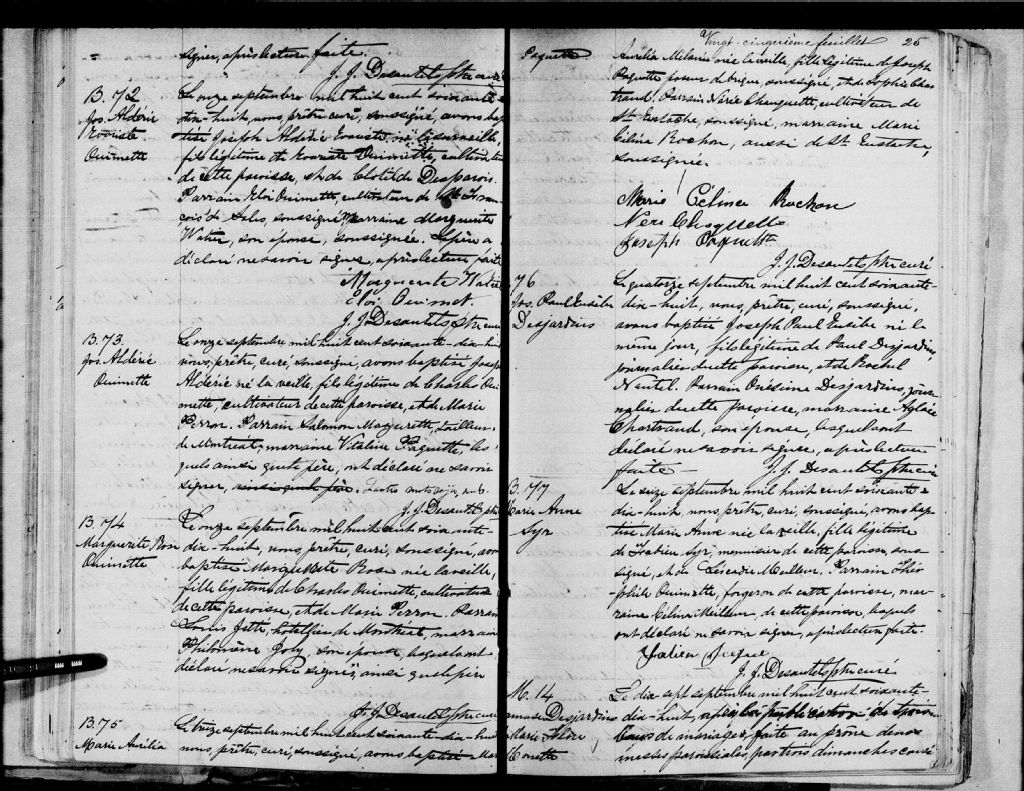 signer, après lecture faite.
J. J. Desautels ptre curé
B. 72
Jos. Aldéric
Evariste
Ouimette
Le onze septembre mil huit cent soixante-
dix-huit, nous, prêtre, curé, soussigné, avons bap
tisé Joseph Aldéric Evariste, né la surveille,
fils légitime de Evariste Ouimette, cultivateur
de cette paroisse, et de Clotilde Desparois.
Parrain Eloi Ouimette, cultivateur de St. Fran
çois de Sales, soussigné, marraine Marguerite
Watier, son épouse, soussignée. Le père a
déclaré ne savoir signer, après lecture faite
Marguerite Watier
Eloi Ouimet.
J. J. Desautels ptre curé
B. 73.
Jos. Aldéric
Ouimette
Le onze septembre mil huit cent soixante-dix-huit
nous, prêtre, curé, soussigné, avons baptisé Joseph
Aldéric né la veille, fils légitime de Charles Oui
mette, cultivateur de cette paroisse, et de Marie
Perron. Parrain Salomon Marguerette, tailleur
de Montréal, marraine Vitaline Paquette, les
quels ainsi que le père, ont déclaré ne savoir
signer, ainsi que le père. quatre mots rayés, nuls.
J. J. Desautels ptre
B. 74
Marguerite Rose
Ouimette
Le onze septembre mil huit cent soixante-
dix-huit, nous, prêtre, curé, soussigné, avons
baptisé Marguerite Rose née la veille,
fille légitime de Charles Ouimette, cultivateur
de cette paroisse, et de Marie Perron. Parrain
Louis Jetté, hotellier de Montréal, marraine
Philomène Joly, son épouse, lesquels ont
déclaré ne savoir signer, ainsi que le père
J. J. Desautels ptre curé
B. 75
Marie Aurélia
Le treize septembre mil huit cent soixante-dix-huit
nous, prêtre, curé, soussigné, avons baptisé Marie
Vingt-cinquième feuillet 25
Paquette
Aurélia Mélanie née la veille, fille légitime de Joseph
Paquette poseur de brique, soussigné, et de Sophie Char
trand. Parrain Nérée Choquette, cultivateur de
St. Eustache, soussigné, marraine Marie
Célina Rochon, aussi de St. Eustache,
soussignée.
Marie Célina Rochon
Nere Choquette
Joseph Paquette
J. J. Desautels ptre curé
76
Jos. Paul Eusèbe
Desjardins
Le quatorze septembre mil huit cent soixante-
dix-huit, nous, prêtre, curé, soussigné,
avons baptisé Joseph Paul Eusèbe né le
même jour, fils légitime de Paul Desjardins,
journalier de cette paroisse, et de Rachel
Nantel. Parrain Onésime Desjardins, jour
nalier de cette paroisse, marraine Aglaée
Chartrand, son épouse, lesquels ont
déclaré ne savoir signer, après lecture
faite - J. J. Desautels ptre curé
B. 77
Marie Anne
Cyr
Le seize septembre mil huit cent soixante-
dix-huit, nous, prêtre, curé, soussigné, avons bap
tisé Marie Anne née la veille, fille légitime
de Cyr, menuisier de cette paroisse, sous
signé, et de Léocadie Meilleur. Parrain Théo
phile Ouimette, forgeron de cette paroisse, mar
raine Célina Meilleur, de cette paroisse, lesquels
ont déclaré ne savoir signer, après lecture faite.
J. J. Desautels ptre curé
M. 14
Desjardins
Marie
Ouellette
Le dix-sept septembre mil huit cent soixante-
dix-huit, après la publication de trois
bans de mariage, faite au prône de nos
messes paroissiales, par trois dimanches consé